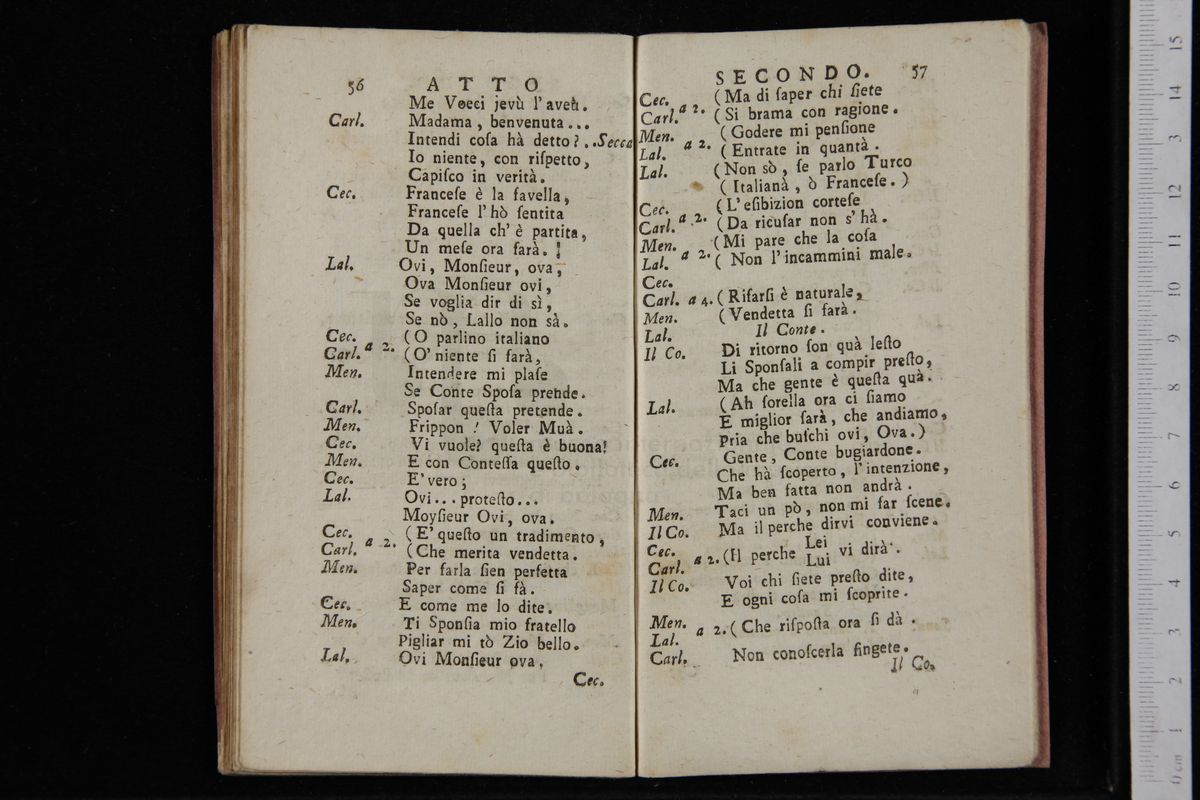 56 ATTO
Me Voeci jevù l'aveù.
Carl. Madama, benvenuta...
Intendi coſa hà detto?..Secca
Io niente, con riſpetto,
Capiſco in verità.
Cec. Franceſe è la favella,
Franceſe l'hò ſentita
Da quella ch'è partita,
Un meſe ora farà.
Lal. Ovi, Monſieur, ova,
Ova Monſieur ovi,
Se voglia dir di sì,
Se nò, Lallo non sà.
Cec. (O parlino italiano
Carl. a 2. (O' niente ſi farà,
Men. Intendere mi plaſe
Se Conte Spoſa prende.
Carl. Spoſar queſta pretende.
Men. Frippon! Voler Muà.
Cec. Vi vuole? queſta è buona!
Men. E con Conteſſa queſto.
Cec. E' vero;
Lal. Ovi...proteſto...
Moyſieur Ovi, ova.
Cec. (E' queſto un tradimento,
Carl. a 2. (Che merita vendetta.
Men. Per farla ſien perfetta
Saper come ſi fà.
Cec. E come me lo dite.
Men. Ti Sponſia mio fratello
Pigliar mi tò Zio bello.
Lal. Ovi Monſieur ova.
Cec.
SECONDO. 57
Cec. (Ma di ſaper chi ſiete
Carl. a 2. (Si brama con ragione.
Men. (Godere mi penſione
Lal. a 2. (Entrate in quantà.
Lal. (Non sò, ſe parlo Turco
(Italianà, ò Franceſe.)
Cec. (L'eſibizion corteſe
Carl. a 2. (Da ricuſar non s'hà.
Men. (Mi pare che la coſa
Lal. a 2. (Non l'incammini male.
Cec.
Carl. a 4. (Rifarſi è naturale,
Men. (Vendetta ſi farà.
Lal. Il Conte.
Il Co. Di ritorno ſon quà leſto
Li Sponſali a compir preſto,
Ma che gente è queſta quà.
Lal. (Ah ſorella ora ci ſiamo
E miglior farà, che andiamo,
Pria che buſchi ovi, Ova.)
Cec. Gente, Conte bugiardone.
Che hà ſcoperto, l'intenzione,
Ma ben fatta non andrà.
Men. Taci un pò, non mi far ſcene.
Il Co. Ma il perche dirvi conviene.
Cec. Lei
Carl. a 2. (Il perche Lui vi dirà.
Il Co. Voi chi ſiete preſto dite,
E ogni coſa mi ſcoprite.
Men. a 2. (Che riſpoſta ora ſi dà.
Lal.
Carl. Non conoſcerla fingete.
Il Co.
15
14
13
12
11
10
9
8
7
6
5
4
3
2
1
0 cm